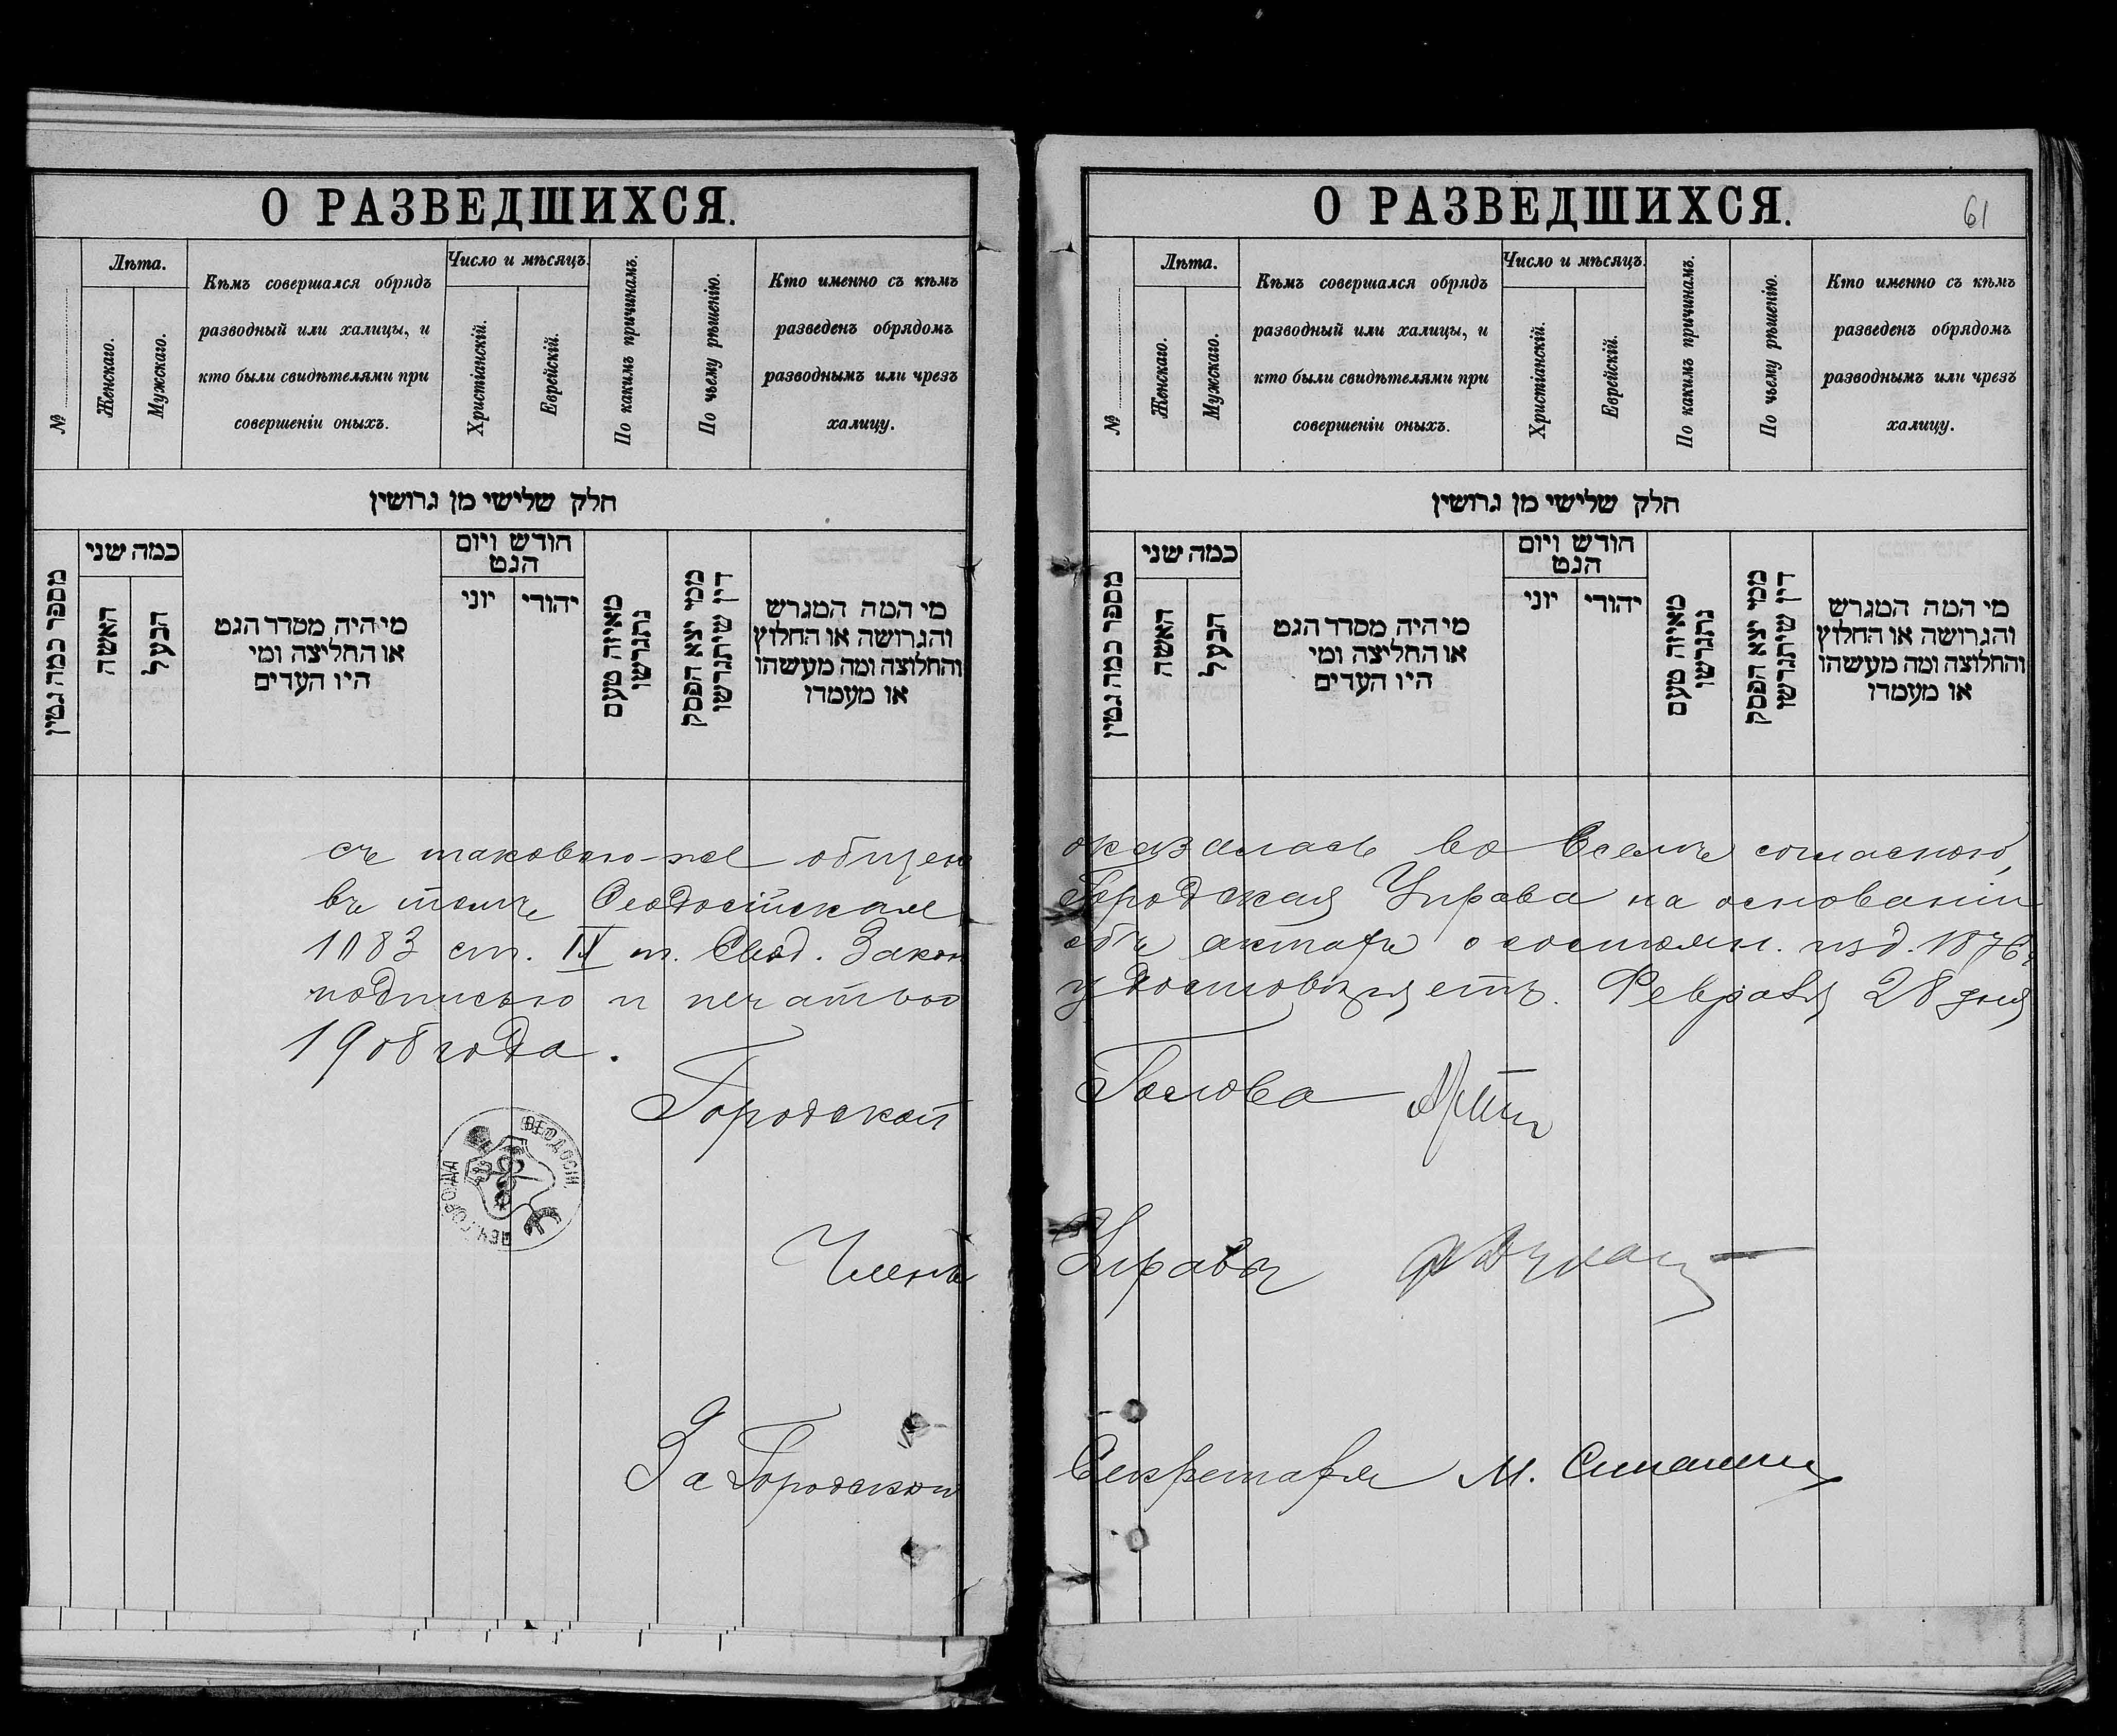 О РАЗВЕДШИХСЯ.
№
Лѣта.
Женскаго.
Мужскаго.
Кѣмъ совершался обрядъ
разводный или халицы, и
кто были свидѣтелями при
совершеніи оныхъ.
Число и мѣсяцъ.
Христіанскій.
Еврейскій.
По какимъ причинамъ.
По чьему рѣшенію.
Кто именно съ кѣмъ
разведенъ обрядомъ
разводнымъ или чрезъ
халицу.
חלק שלישי מן גרושין
מספר כמה גטין
כמה שני
האשה
הבעל
מי היה מסדר הגט
או החליצה ומי
היו העדים
חודש ויום
הגט
יוני
יהודי
מאיזה טעם
נתגרשו
ממי יצא הפסק
דין שיתגרשו
מי המה המגרש
והגרושה או החלוץ
והחלוצה ומה מעשהו
או מעמדו
съ таковою-же общен
въ томъ Ѳеодосійская
1083 ст. IX т. Свод. Закон
подписью и печатью
1908 года.
Городской
ПЕЧ. ГОРОДА ѲЕОДОСІИ
Членъ
За Городского
О РАЗВЕДШИХСЯ.
61
№
Лѣта.
Женскаго.
Мужскаго.
Кѣмъ совершался обрядъ
разводный или халицы, и
кто были свидѣтелями при
совершеніи оныхъ.
Число и мѣсяцъ.
Христіанскій.
Еврейскій.
По какимъ причинамъ.
По чьему рѣшенію.
Кто именно съ кѣмъ
разведенъ обрядомъ
разводнымъ или чрезъ
халицу.
חלק שלישי מן גרושין
מספר כמה גטין
כמה שני
האשה
הבעל
מי היה מסדר הגט
או החליצה ומי
היו העדים
חודש ויום
הגט
יוני
יהודי
מאיזה טעם
נתגרשו
ממי יצא הפסק
דין שיתגרשו
מי המה המגרש
והגרושה או החלוץ
והחלוצה ומה מעשהו
או מעמדו
оказалась во всемъ согласною,
Городская Управа на основаніи
объ актахъ о состоян. изд. 1876 г.
удостовѣряетъ. Февраля 28 дня
Голова
Управы
Секретаря М.